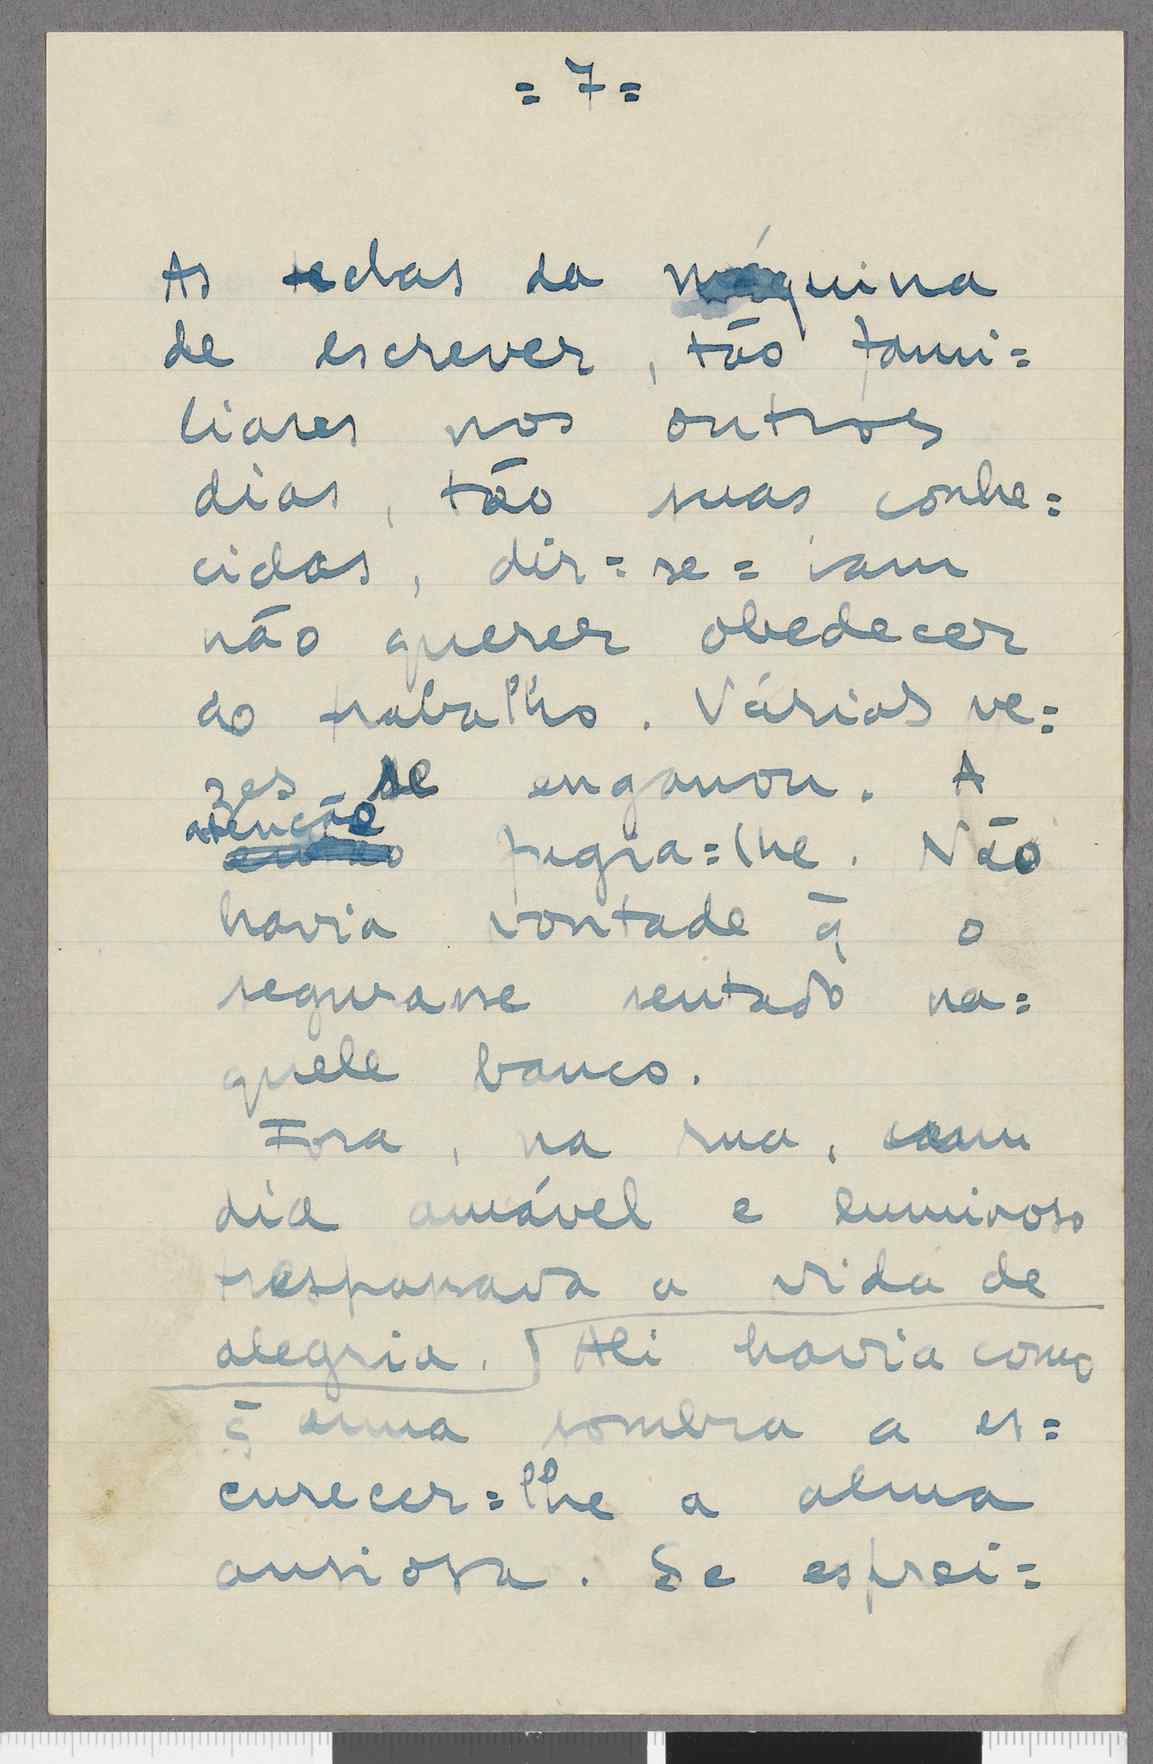 = 7 =
As teclas da máquina
de escrever, tão fami=
liares nos outros
dias, tão suas conhe=
cidas, dir=se=iam
não querer obedecer
ao trabalho. Várias ve=
zes se enganou. A
atenção
fugia=lhe. Não
havia vontade q̄ o
segurasse sentado na=
quele banco.
Fora, na rua, um
dia amável e luminoso
trespassava a vida de
alegria. Ali havia como
q̄ uma sombra a es=
curecer=lhe a alma
ansiosa. Se esprei=